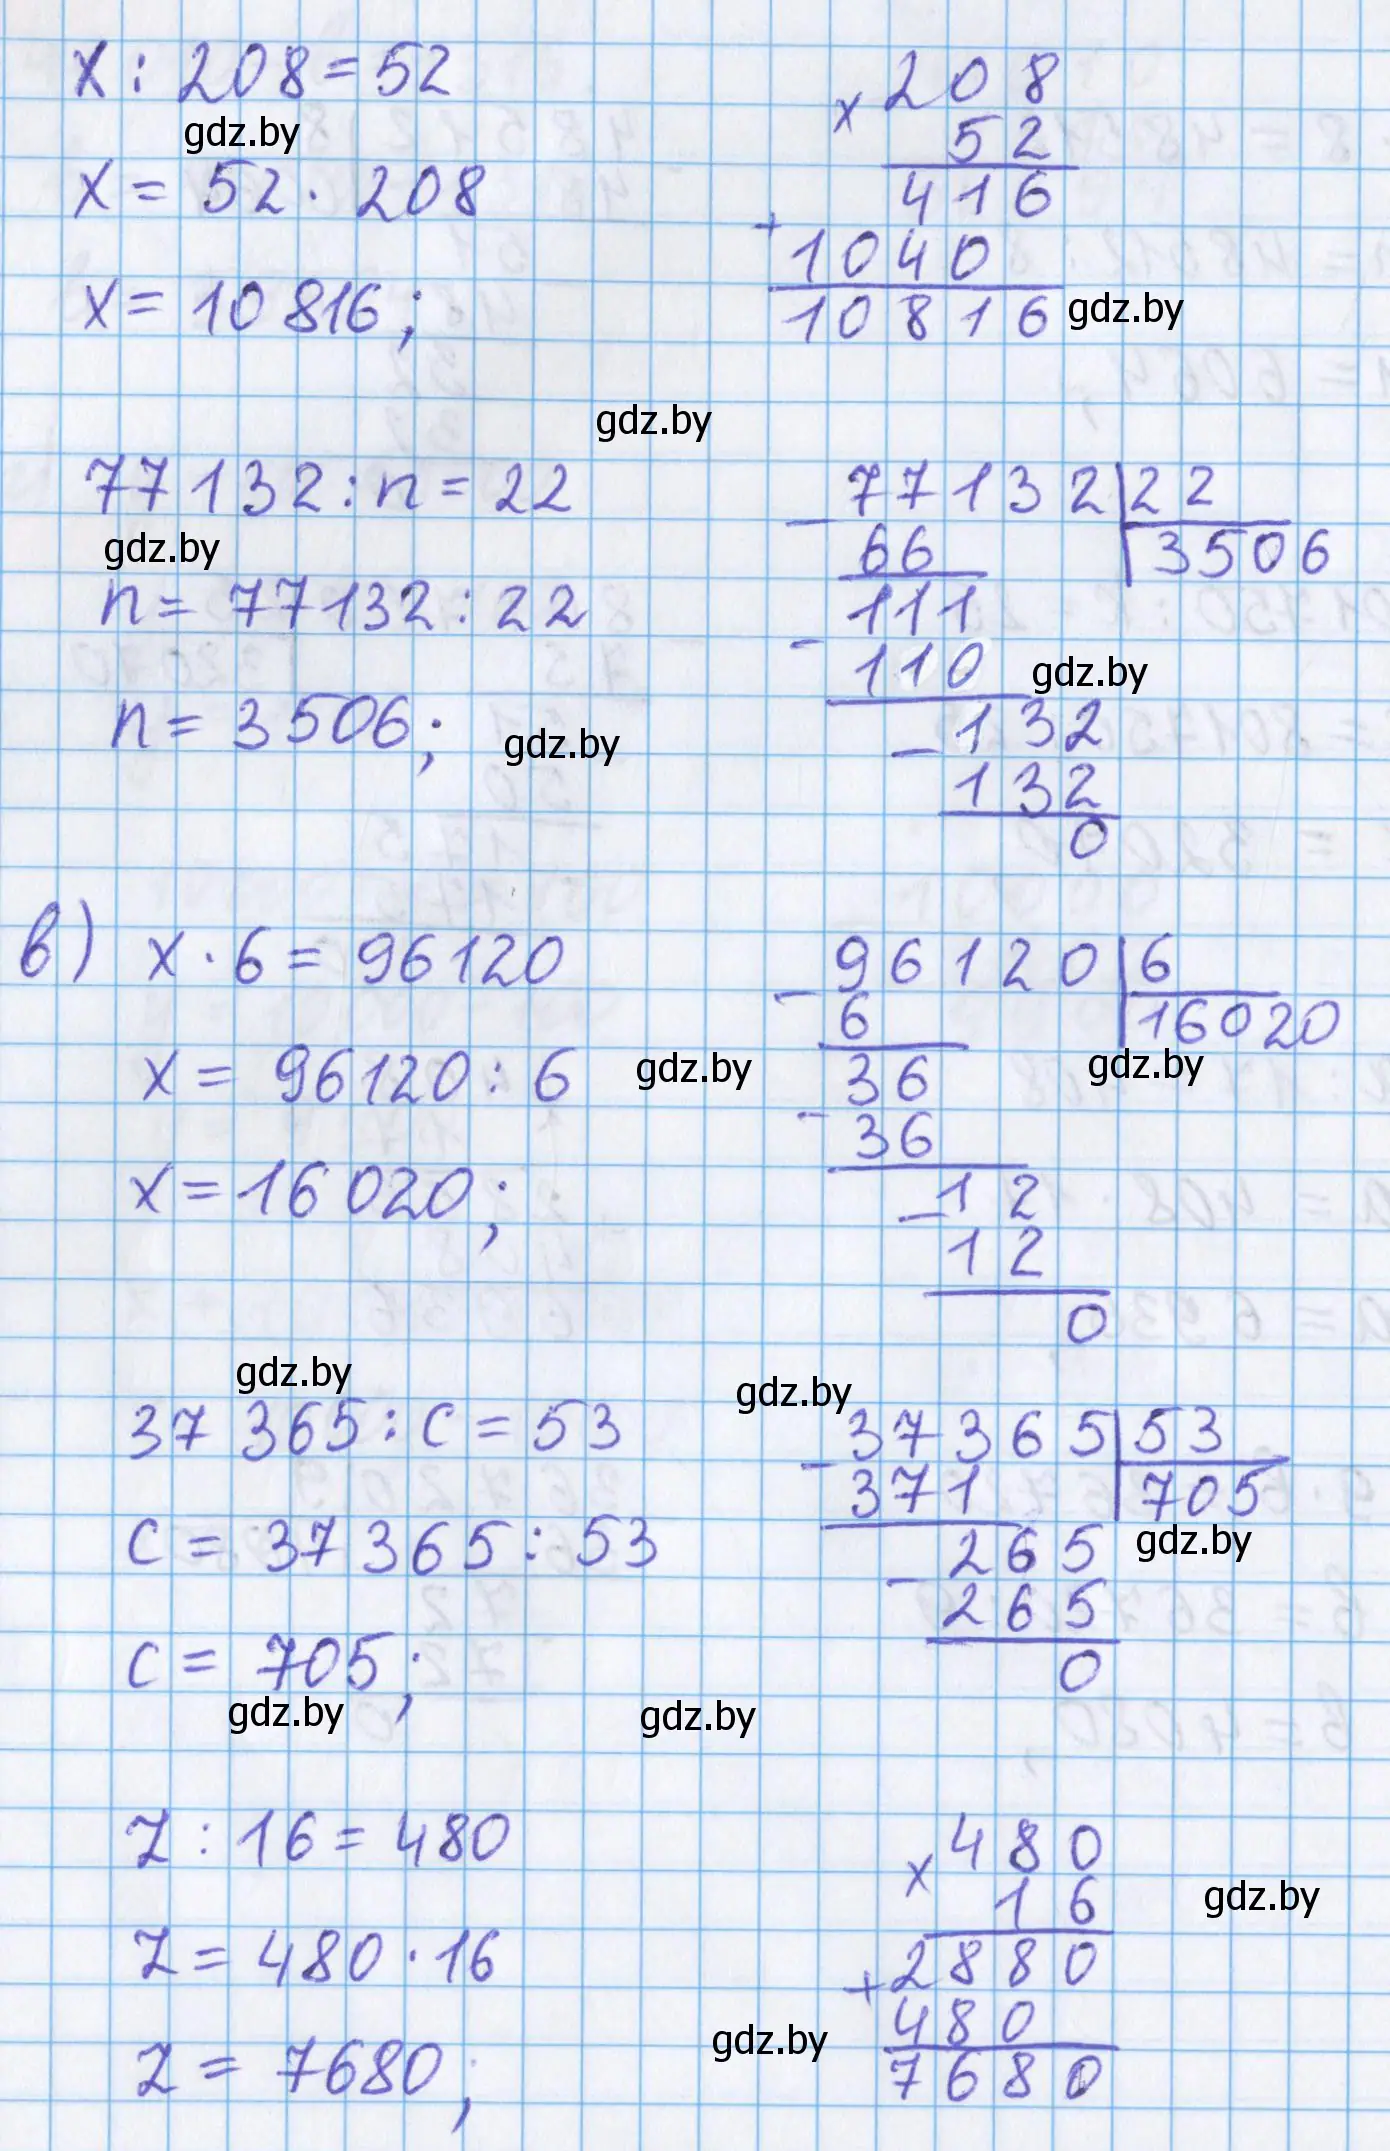 x : 208 = 52
gdz.by
x = 52 · 208
x = 10 816;
x 208
52
416
+ 1040
10816
gdz.by
gdz.by
77132 : n = 22
gdz.by
n = 77132 : 22
n = 3506;
gdz.by
− 77132 | 22
66 | 3506
111
− 110
gdz.by
− 132
132
0
в) x · 6 = 96120
x = 96120 : 6
gdz.by
x = 16 020;
− 96120 | 6
6 | 16020
gdz.by
36
− 36
− 12
12
0
gdz.by
37 365 : c = 53
c = 37 365 : 53
c = 705;
gdz.by
gdz.by
gdz.by
− 37365 | 53
371 | 705
gdz.by
− 265
265
0
z : 16 = 480
z = 480 · 16
z = 7680;
x 480
16
gdz.by
2880
+ 480
gdz.by
7680